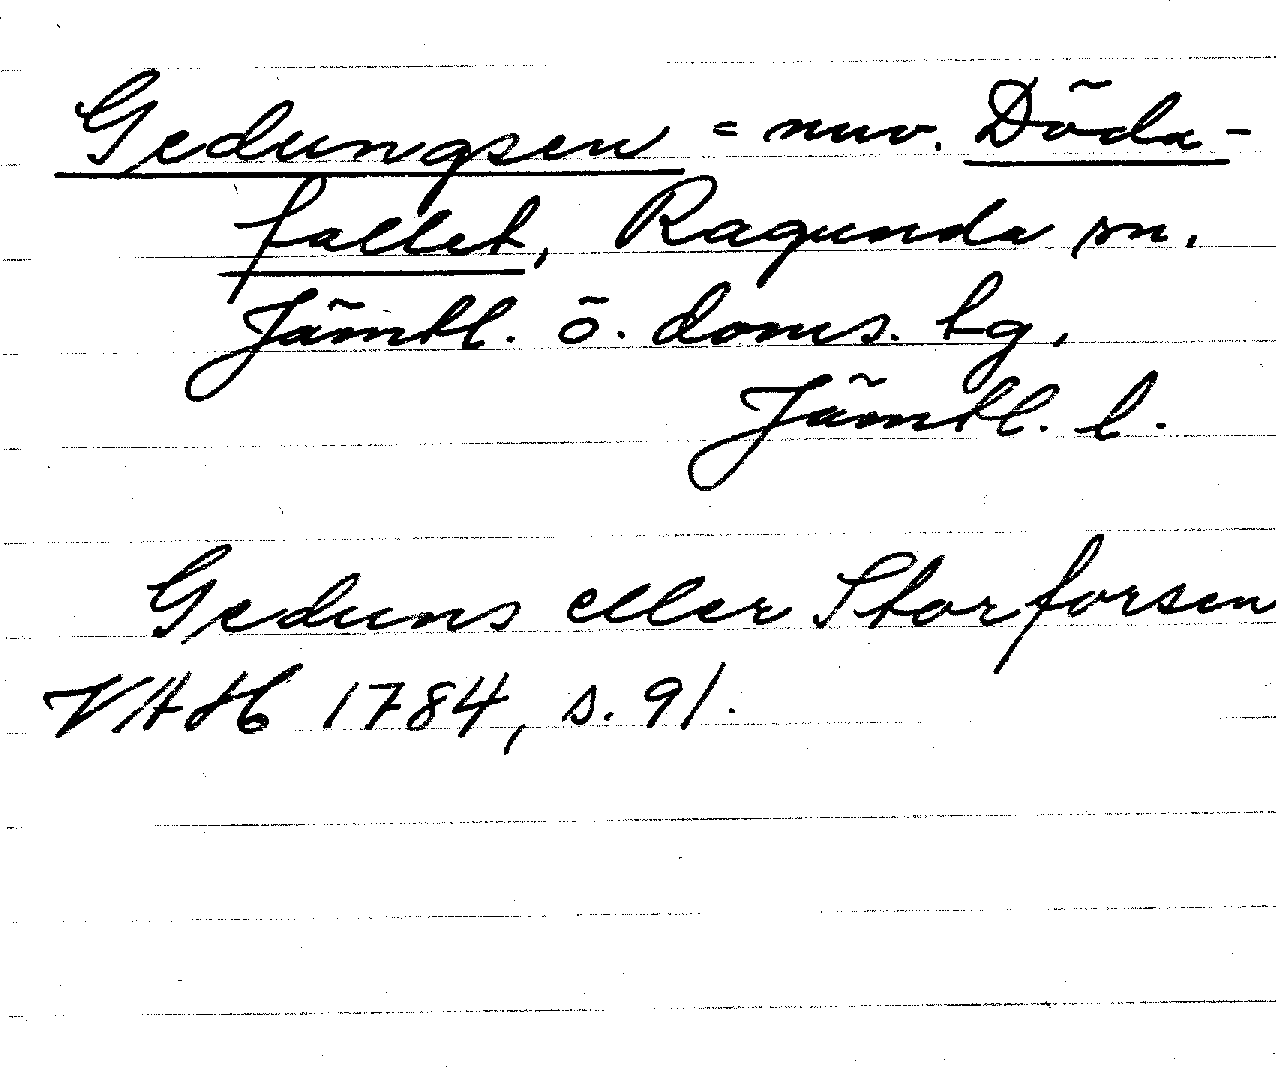 Gedungsen = nuv. Döda-
fallet, Ragunda sn.
Jämtl. ö. doms. tg,
Jämtl. l.
Geduns eller Storforsen
VAH 1784, s. 91.